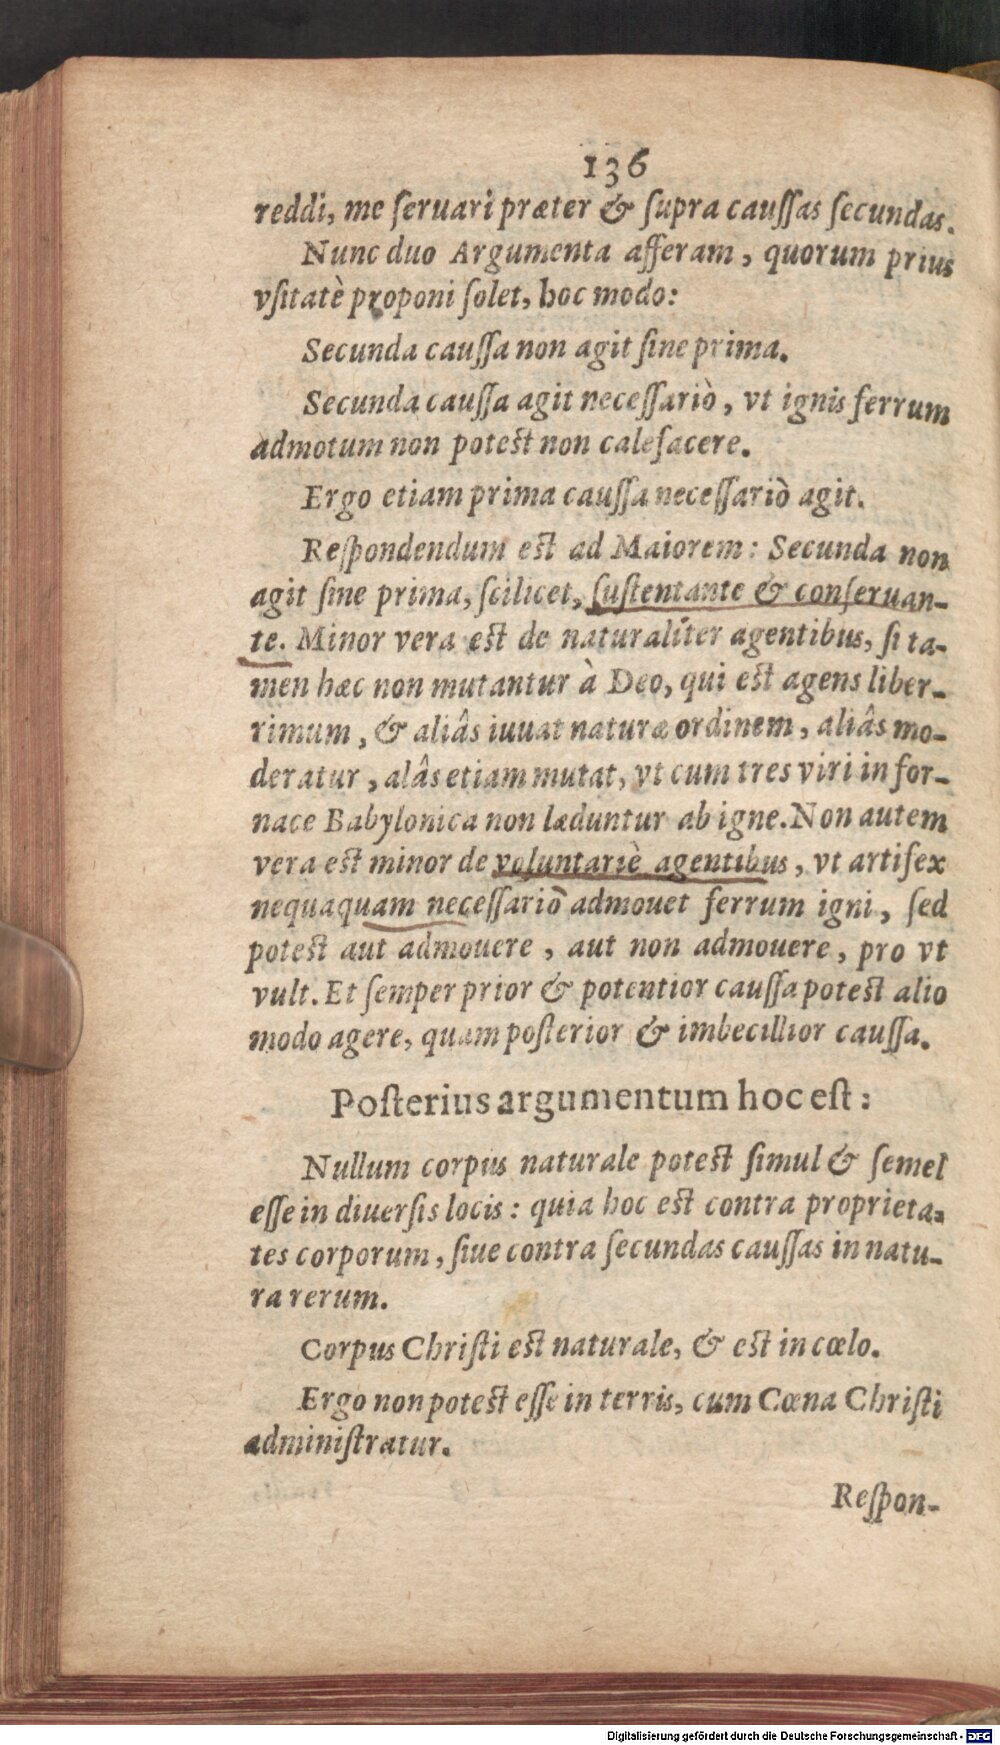 136
reddi, me ſeruari præter & ſupra cauſſas ſecundas.
Nunc duo Argumenta afferam, quorum prius
vſitatè proponi ſolet, hoc modo:
Secunda cauſſa non agit ſine prima.
Secunda cauſſa agit neceſſariò, vt ignis ferrum
admotum non poteſt non calefacere.
Ergo etiam prima cauſſa neceſſariò agit.
Reſpondendum eſt ad Maiorem: Secunda non
agit ſine prima, ſcilicet, ſuſtentante & conſeruan-
te. Minor vera eſt de naturaliter agentibus, ſi ta-
men hæc non mutantur à Deo, qui eſt agens liber-
rimum, & aliâs iuuat naturæ ordinem, aliâs mo-
deratur, alâs etiam mutat, vt cum tres viri in for-
nace Babylonica non læduntur ab igne. Non autem
vera eſt minor de voluntariè agentibus, vt artifex
nequaquam neceſſariò admouet ferrum igni, ſed
poteſt aut admouere, aut non admouere, pro vt
vult. Et ſemper prior & potentior cauſſa poteſt alio
modo agere, quam poſterior & imbecillior cauſſa.
Poſterius argumentum hoc eſt:
Nullum corpus naturale poteſt ſimul & ſemel
eſſe in diuerſis locis: quia hoc eſt contra proprieta-
tes corporum, ſiue contra ſecundas cauſſas in natu-
ra rerum.
Corpus Chriſti eſt naturale, & eſt in cœlo.
Ergo non poteſt eſſe in terris, cum Cœna Chriſti
adminiſtratur.
Reſpon-
Digitalisierung gefördert durch die Deutsche Forschungsgemeinschaft - DFG